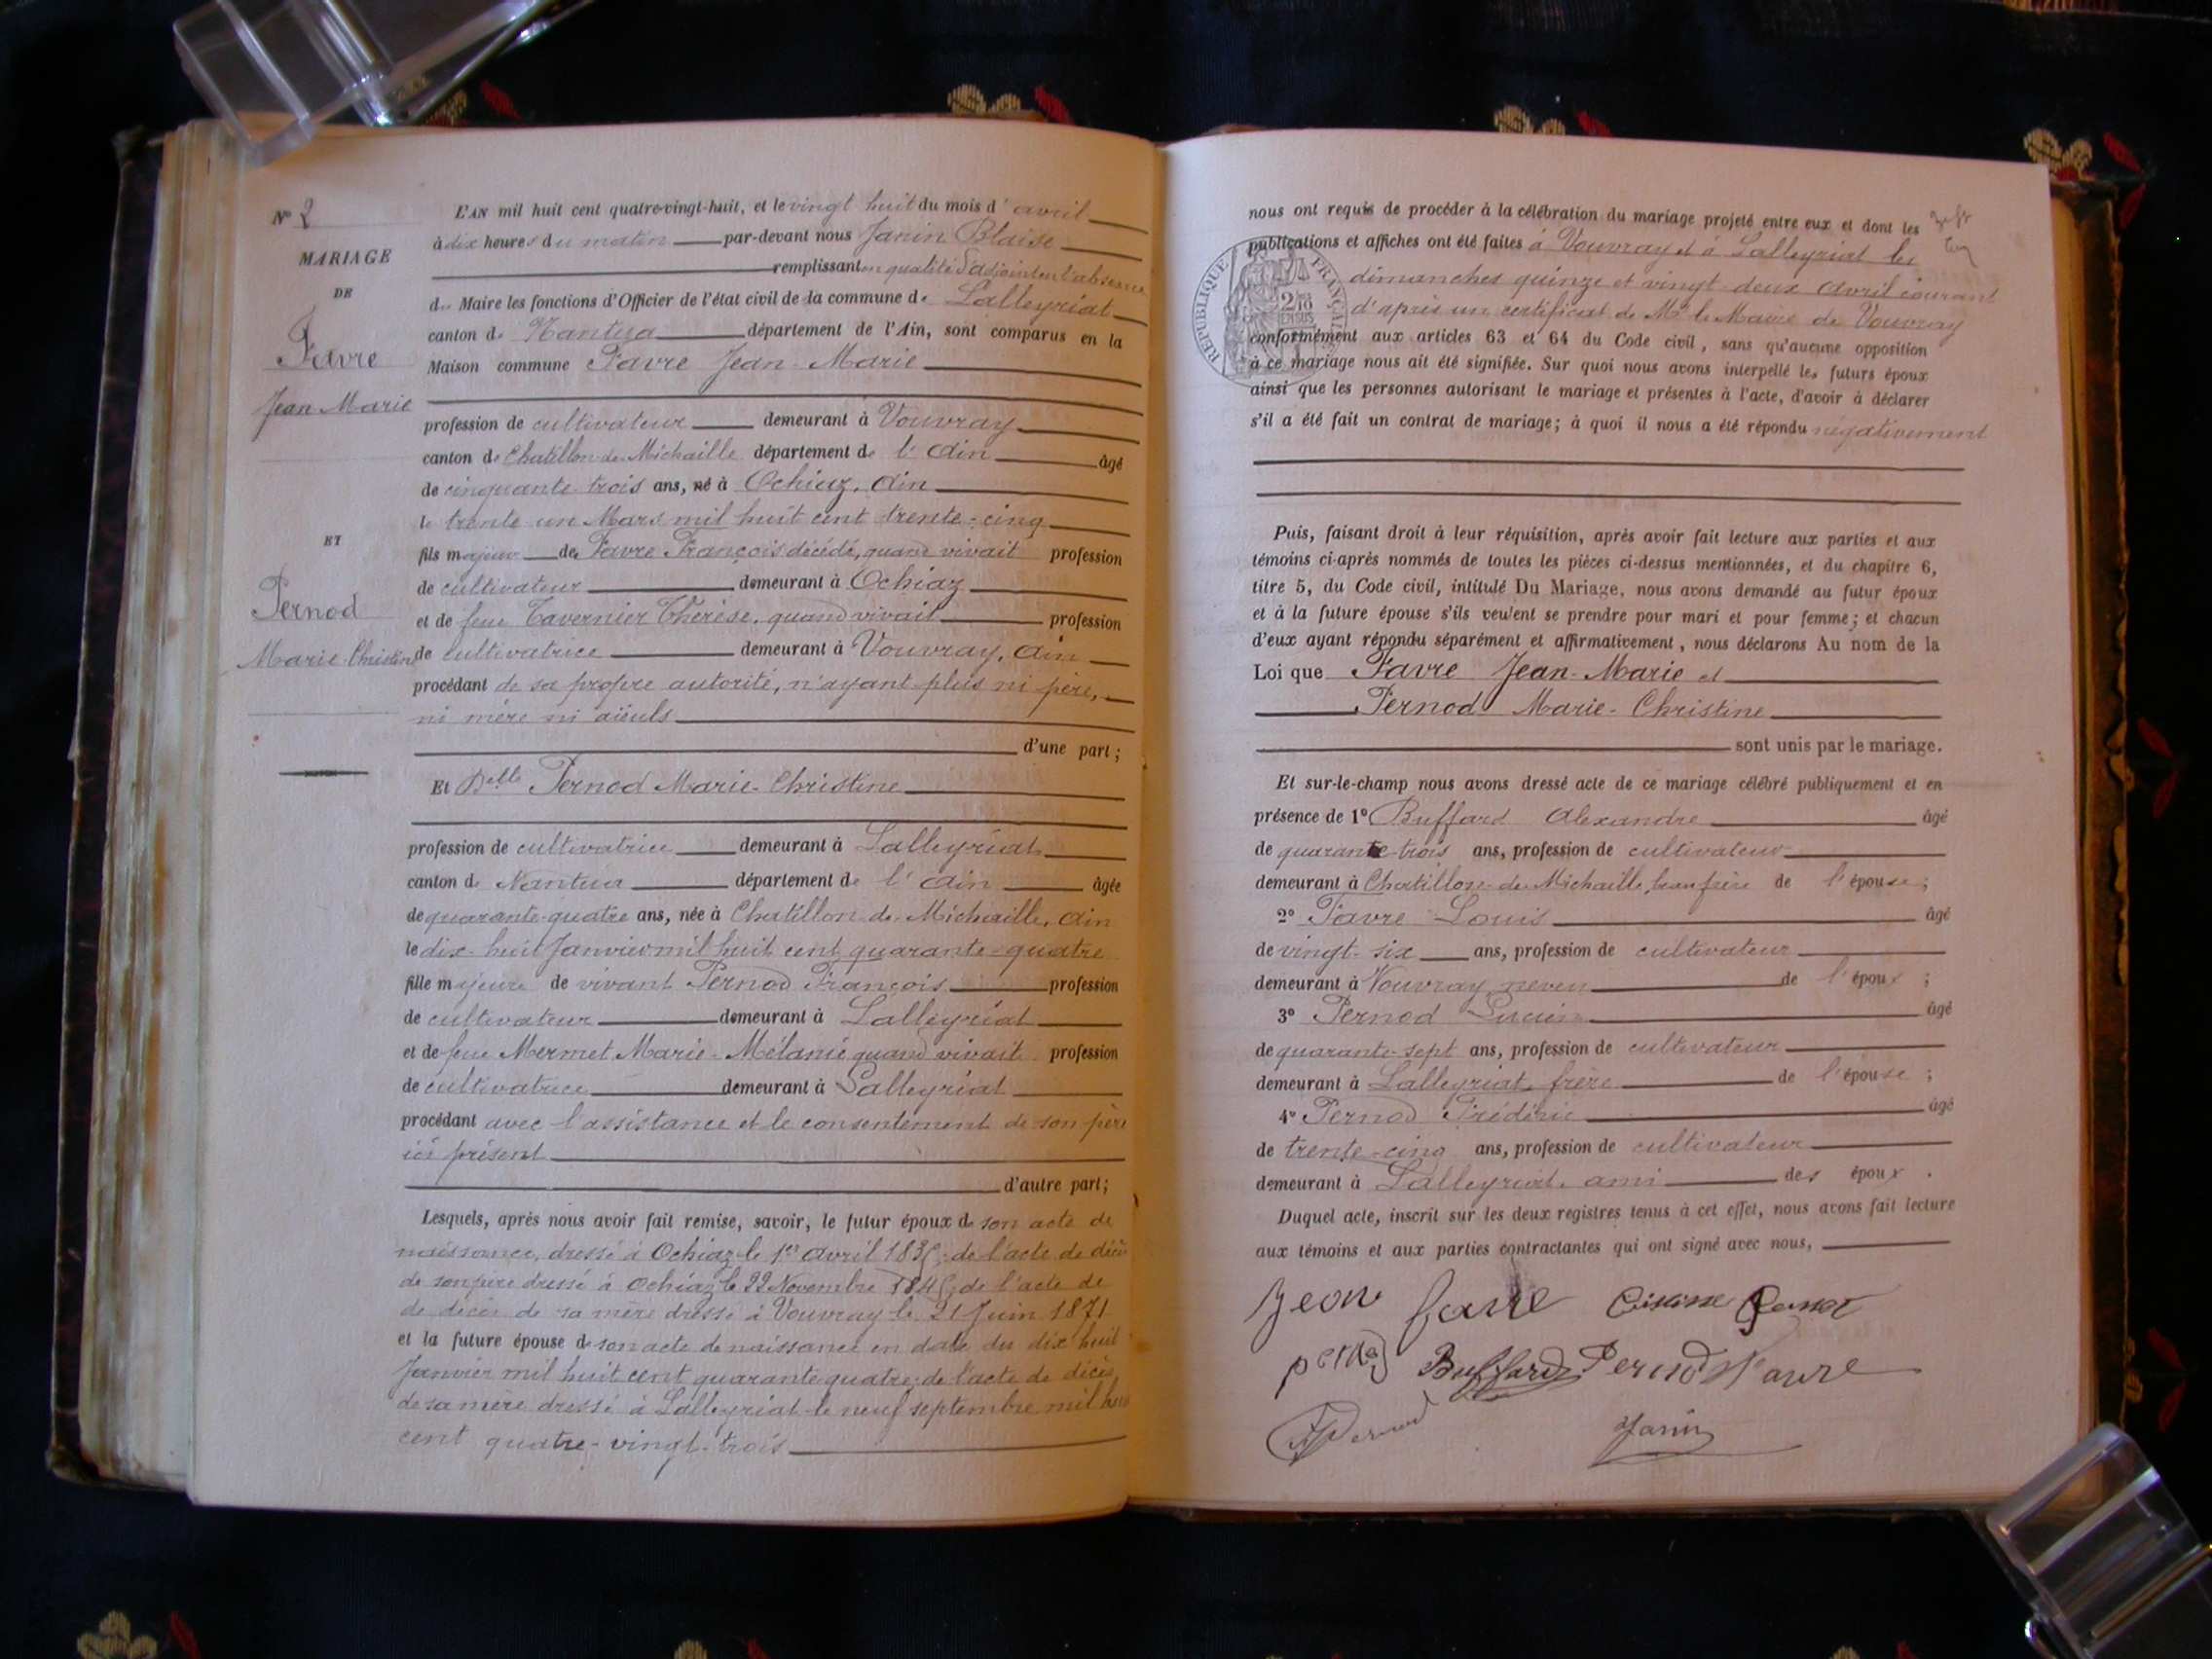 N° 2
MARIAGE
DE
Favre
Jean Marie
ET
Pernod
Marie-Christine
L'AN mil huit cent quatre-vingt-huit, et le vingt huit du mois d'avril
à dix heures du matin par-devant nous Janin Blaise
remplissant en qualité d'adjoint en l'absence
de Maire les fonctions d'Officier de l'état civil de la commune de Lalleyriat
canton de Nantua département de l'Ain, sont comparus en la
Maison commune Favre Jean Marie
profession de cultivateur demeurant à Vouvray
canton de Chatillon-de-Michaille département de l'Ain âgé
de cinquante trois ans, né à Ochiaz, Ain
le trente un Mars mil huit cent trente-cinq
fils majeur de Favre François décédé, quand vivait profession
de cultivateur demeurant à Ochiaz
et de feue Tavernier Thérèse, quand vivait profession
de cultivatrice demeurant à Vouvray, Ain
procédant de sa propre autorité, n'ayant plus ni père,
ni mère ni aïeuls
d'une part;
Et Delle Pernod Marie-Christine
profession de cultivatrice demeurant à Lalleyriat
canton de Nantua département de l'Ain âgée
de quarante-quatre ans, née à Chatillon-de-Michaille, Ain
le dix-huit Janvier mil huit cent quarante-quatre
fille majeure de vivant Pernod François profession
de cultivateur demeurant à Lalleyriat
et de feue Mermet Marie-Mélanie quand vivait profession
de cultivatrice demeurant à Lalleyriat
procédant avec l'assistance et le consentement de son père
ici présent
d'autre part;
Lesquels, après nous avoir fait remise, savoir, le futur époux de son acte de
naissance, dressé à Ochiaz le 1er avril 1835; de l'acte de décès
de son père dressé à Ochiaz le 22 Novembre 1845; de l'acte de
de décès de sa mère dressé à Vouvray le 21 Juin 1871
et la future épouse de son acte de naissance en date du dix huit
Janvier mil huit cent quarante quatre; de l'acte de décès
de sa mère dressé à Lalleyriat le neuf septembre mil huit
cent quatre-vingt-trois
nous ont requis de procéder à la célébration du mariage projeté entre eux et dont les
publications et affiches ont été faites à Vouvray et à Lalleyriat les
dimanches quinze et vingt-deux Avril courant
d'après un certificat de Mr le Maire de Vouvray
RÉPUBLIQUE FRANÇAISE
conformément aux articles 63 et 64 du Code civil, sans qu'aucune opposition
à ce mariage nous ait été signifiée. Sur quoi nous avons interpellé les futurs époux
ainsi que les personnes autorisant le mariage et présentes à l'acte, d'avoir à déclarer
s'il a été fait un contrat de mariage; à quoi il nous a été répondu négativement
Puis, faisant droit à leur réquisition, après avoir fait lecture aux parties et aux
témoins ci-après nommés de toutes les pièces ci-dessus mentionnées, et du chapitre 6,
titre 5, du Code civil, intitulé Du Mariage, nous avons demandé au futur époux
et à la future épouse s'ils veulent se prendre pour mari et pour femme; et chacun
d'eux ayant répondu séparément et affirmativement, nous déclarons Au nom de la
Loi que Favre Jean-Marie et
Pernod Marie-Christine
sont unis par le mariage.
Et sur-le-champ nous avons dressé acte de ce mariage célébré publiquement et en
présence de 1° Buffard Alexandre âgé
de quarante-trois ans, profession de cultivateur
demeurant à Chatillon-de-Michaille, beau frère de l'épouse;
2° Favre Louis âgé
de vingt-six ans, profession de cultivateur
demeurant à Vouvray neveu de l'époux;
3° Pernod Lucien âgé
de quarante-sept ans, profession de cultivateur
demeurant à Lalleyriat, frère de l'épouse;
4° Pernod Frédéric âgé
de trente-cinq ans, profession de cultivateur
demeurant à Lalleyriat, ami des époux.
Duquel acte, inscrit sur les deux registres tenus à cet effet, nous avons fait lecture
aux témoins et aux parties contractantes qui ont signé avec nous,
Jean favre
Buffard Pernod Favre
Pernod Janin